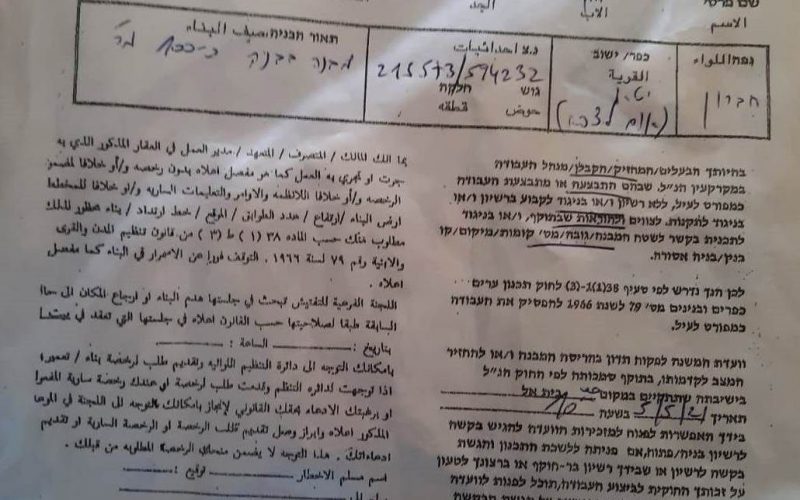 שם פרטי
الاسم
الاب
الجد
נפה/اللواء
חברון
כפר/ ישוב
القرية
יטא
נ.צ احداثيات
215573/594232
גוש חלקה
حوض قطعه
תאור הבניה/وصف البناء
מבנה בבניה כ-1000 מ"ר
בהיותך הבעלים/המחזיק/הקבלן/מנהל העבודה
במקרקעין הנ"ל שבהם התבצעה או מתבצעת העבודה
כמפורט לעיל, ללא רשיון ו/או בניגוד לקבוע ברשיון ו/או
בניגוד לתקנות, לצווים ולהוראות שבתוקף, ו/או בניגוד
לתכנית בקשר לשטח המבנה/גובה/מס' קומות/מיקום/קו
בנין/בניה אסורה.
לכן הנך נדרש לפי סעיף 38(1)(ג-3) לחוק תכנון ערים
כפרים ובנינים מס' 79 לשנת 1966 להפסיק את העבודה
כמפורט לעיל.
וועדת המשנה לפקוח תדון בהריסת המבנה ו/או להחזיר
המצב לקדמותו, בתוקף סמכותה לפי החוק הנ"ל
בישיבתה שתתקיים במקום בית אל
תאריך 5/5/21 בשעה 10
בידך האפשרות לפנות למזכירות הוועדה להגיש בקשה
לרשיון בניה/פתוח, אם פנית ללשכת התכנון והגשת
בקשה לרשיון או שבידך רשיון בר-תוקף או ברצונך לטעון
על זכותך החוקית לביצוע העבודה, תוכל לפנות לוועדה
بما انك المالك / المتصرف / المتعهد / مدير العمل في العقار المذكور الذي به
جرت او تجري به العمل كما هو مفصل اعلاه بدون رخصه و/أو خلافا
الرخصه و/أو خلافا للانظمه والاوامر والتعليمات الساريه و/أو خلافا للمخطط
ارض البناء /ارتفاع / عدد الطوابق / الموقع / خط ارتداد / بناء محظور لذلك
مطلوب منك حسب الماده ٣٨ (١) ط (٣) من قانون تنظيم المدن والقرى
والابنية رقم ٧٩ لسنة ١٩٦٦. التوقف فورا عن الاستمرار في البناء كما مفصل
اعلاه .
اللجنة الفرعية للتفتيش تبحث في جلستها هدم البناء او ارجاع المكان الى حالته
السابقة طبقا لصلاحيتها حسب القانون اعلاه في جلستها التي تعقد في
بتاريخ: الساعة :
بامكانك التوجه الى دائرة التنظيم اللوائيه وتقديم طلب لرخصة بناء / تعمير،
اذا توجهت لدائره التنظيم وقدمت طلب لرخصة او عندك رخصة سارية المفعول
او برغبتك الادعاء بحقك القانوني لانجاز بامكانك التوجه الى اللجنة في الموعد
المذكور اعلاه وابراز وصل تقديم طلب الرخصة او الرخصة السارية او تقديم
ادعاءاتك . هذا التوجه لا يضمن منحك الرخصة المطلوبه من قبلك .
اسم مسلم الاخطار توقيع :